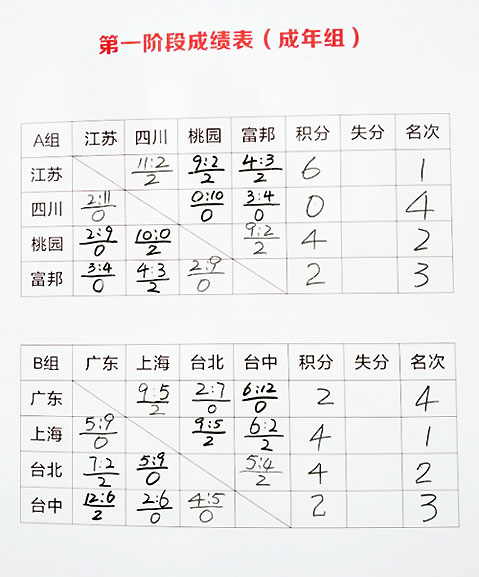 第一阶段成绩表(成年组)
A组 江苏 四川 桃园 富邦 积分 失分 名次
江苏 11:2/2 9:2/2 4:3/2 6 1
四川 2:11/0 0:10/0 3:4/0 0 4
桃园 2:9/0 10:0/2 9:2/2 4 2
富邦 3:4/0 4:3/2 2:9/0 2 3
B组 广东 上海 台北 台中 积分 失分 名次
广东 9:5/2 2:7/0 6:12/0 2 4
上海 5:9/0 9:5/2 6:2/2 4 1
台北 7:2/2 5:9/0 5:4/2 4 2
台中 12:6/2 2:6/0 4:5/0 2 3